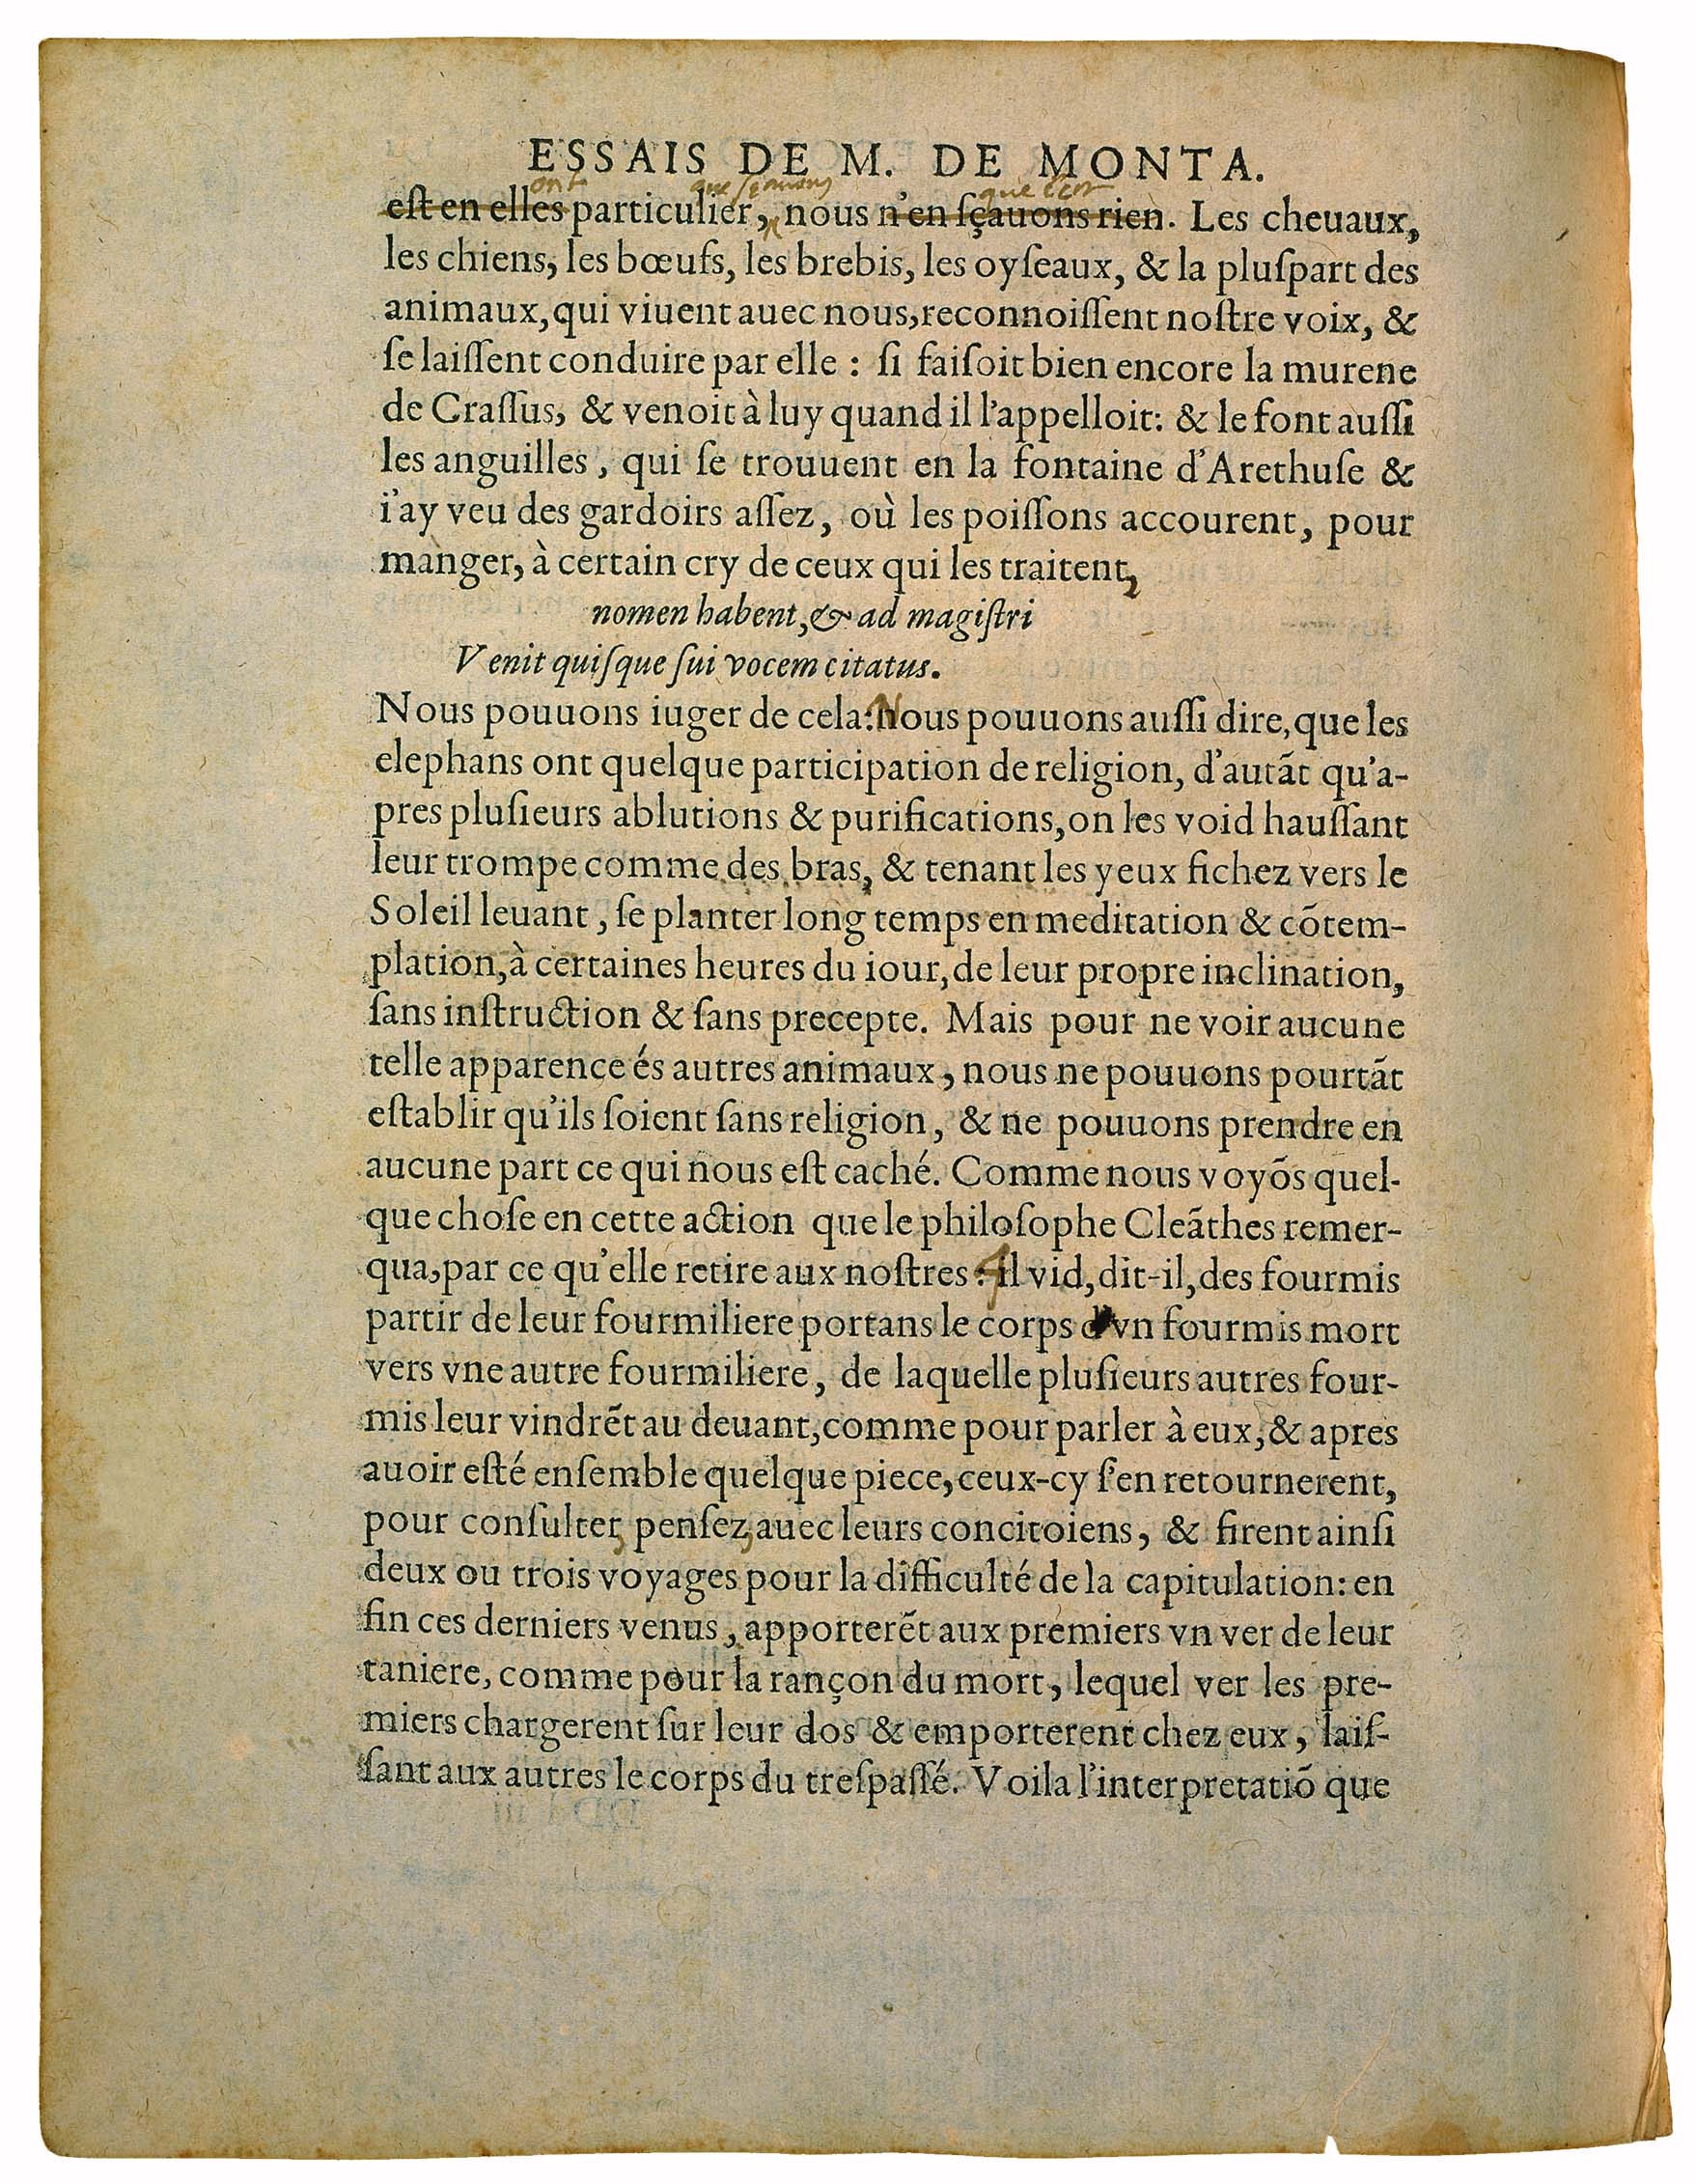 ESSAIS DE M. DE MONTA.
ont que sçauons que c'est
eſt en elles particulier, nous n'en ſçauons rien. Les cheuaux,
les chiens, les bœufs, les brebis, les oyſeaux, & la pluſpart des
animaux, qui viuent auec nous, reconnoiſſent noſtre voix, &
ſe laiſſent conduire par elle : ſi faiſoit bien encore la murene
de Craſſus, & venoit à luy quand il l'appelloit: & le font auſſi
les anguilles, qui ſe trouuent en la fontaine d'Arethuſe &
i'ay veu des gardoirs aſſez, où les poiſſons accourent, pour
manger, à certain cry de ceux qui les traitent,
nomen habent, & ad magiſtri
Venit quiſque ſui vocem citatus.
Nous pouuons iuger de cela: Nous pouuons auſſi dire, que les
elephans ont quelque participation de religion, d'autãt qu'a-
pres pluſieurs ablutions & purifications, on les void hauſſant
leur trompe comme des bras, & tenant les yeux fichez vers le
Soleil leuant, ſe planter long temps en meditation & cõtem-
plation, à certaines heures du iour, de leur propre inclination,
ſans inſtruction & ſans precepte. Mais pour ne voir aucune
telle apparence és autres animaux, nous ne pouuons pourtãt
eſtablir qu'ils ſoient ſans religion, & ne pouuons prendre en
aucune part ce qui nous eſt caché. Comme nous voyõs quel-
que choſe en cette action que le philoſophe Cleãthes remer-
qua, par ce qu'elle retire aux noſtres : il vid, dit-il, des fourmis
partir de leur fourmiliere portans le corps d'vn fourmis mort
vers vne autre fourmiliere, de laquelle pluſieurs autres four-
mis leur vindrẽt au deuant, comme pour parler à eux, & apres
auoir eſté enſemble quelque piece, ceux-cy ſ'en retournerent,
pour conſulter, penſez, auec leurs concitoiens, & firent ainſi
deux ou trois voyages pour la difficulté de la capitulation: en
fin ces derniers venus, apporterẽt aux premiers vn ver de leur
taniere, comme pour la rançon du mort, lequel ver les pre-
miers chargerent ſur leur dos & emporterent chez eux, laiſ-
ſant aux autres le corps du treſpaſſé. Voila l'interpretatiõ que